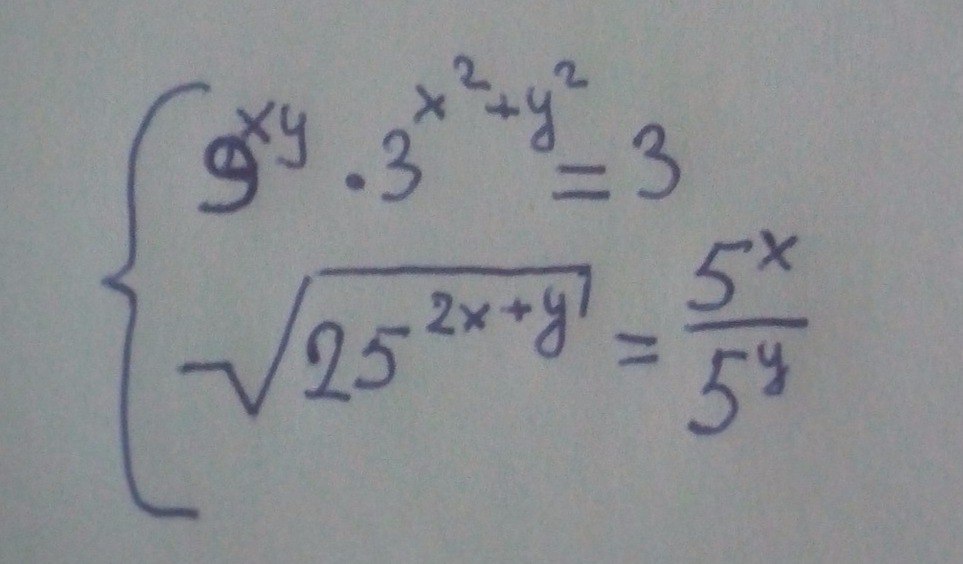 9^{xy} \cdot 3^{x^2+y^2} = 3
\sqrt{25^{2x+y}} = \frac{5^x}{5^y}